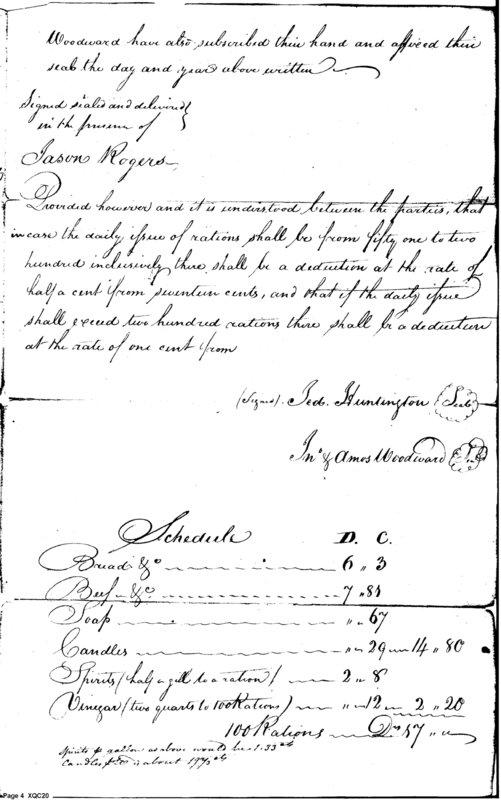 Woodward have also subscribed their hand and affixed their
seals the day and year above written
Signed sealed and delivered
in the presence of
Jason Rogers
Provided however and it is understood between the parties, that
in case the daily issue of rations shall be from fifty one to two
hundred inclusively there shall be a deduction at the rate of
half a cent from seventeen cents, and that if the daily issue
shall exceed two hundred rations there shall be a deduction
at the rate of one cent from
(Signed). Jed. Huntington Seal
Jno & Amos Woodward Seal
Schedule D. C.
Bread &c 6 " 3
Beef &c 7 " 81
Soap " " 67
Candles " " 29 " 14 " 80
Spirits (half a gill to a ration) 2 " 8
Vinegar (two quarts to 100 Rations) " " 12 " 2 " 20
100 Rations 17 " "
Spirits gallon as above would be 1.33
Candles is about 19
Page 4 XQC20